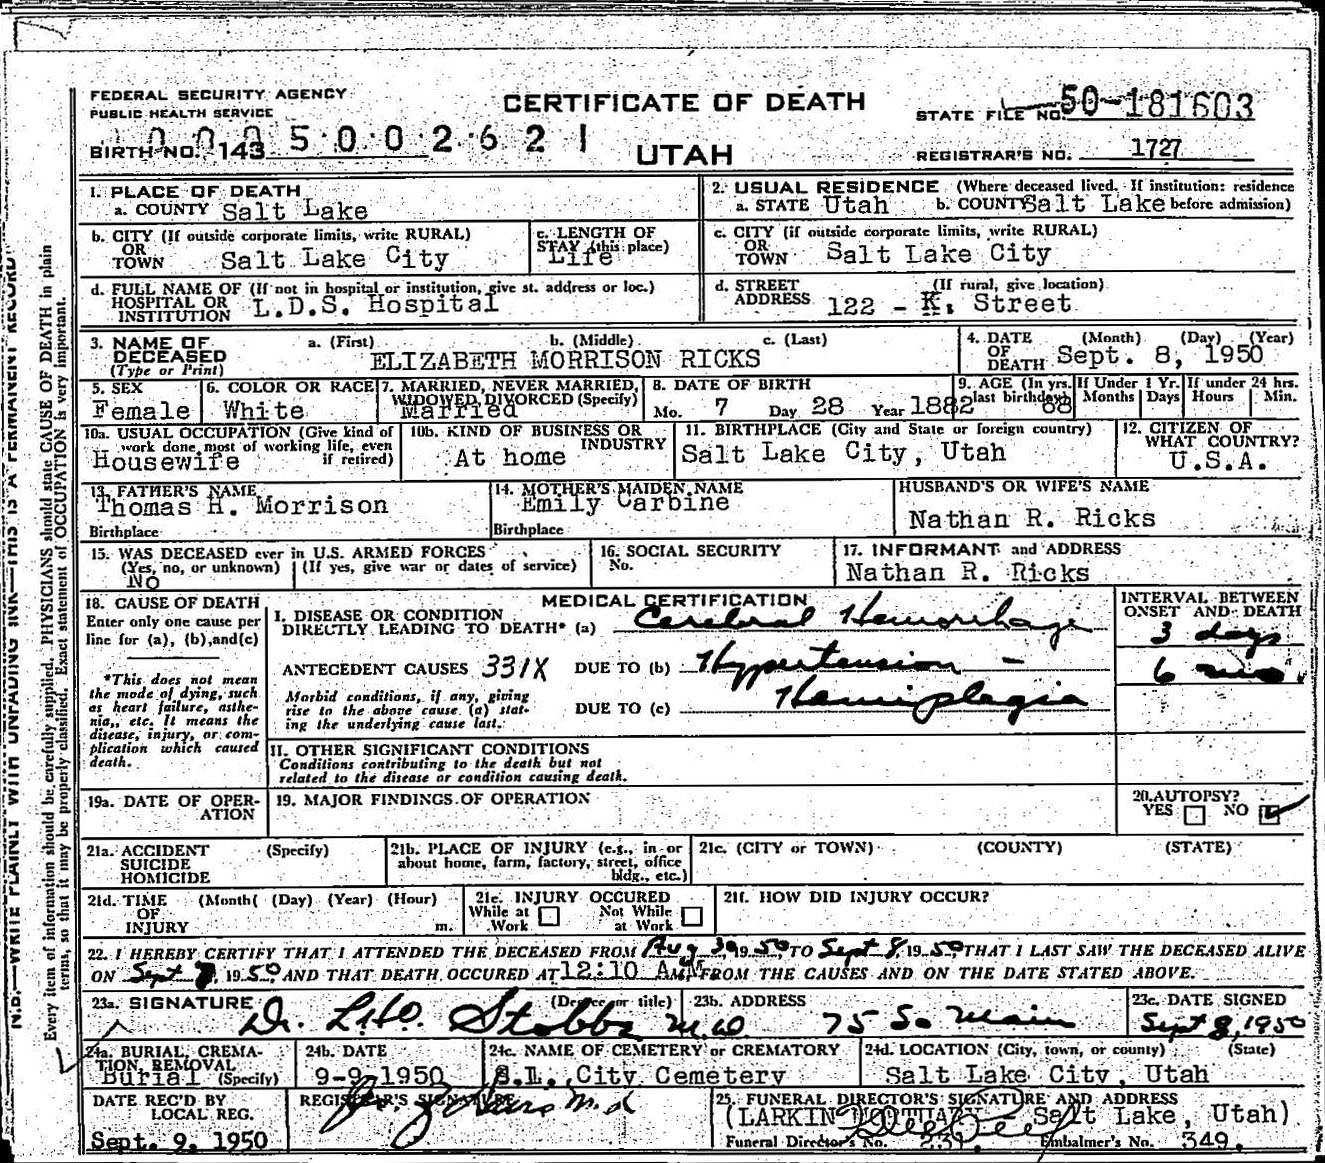 FEDERAL SECURITY AGENCY
PUBLIC HEALTH SERVICE
CERTIFICATE OF DEATH
STATE FILE NO. 50-181603
BIRTH NO. 143 5 0 0 2 6 2 1
UTAH
REGISTRAR'S NO. 1727
1. PLACE OF DEATH
a. COUNTY Salt Lake
2. USUAL RESIDENCE (Where deceased lived. If institution: residence
a. STATE Utah b. COUNTY Salt Lake before admission)
b. CITY (If outside corporate limits, write RURAL)
OR
TOWN Salt Lake City
c. LENGTH OF
STAY (this place)
Life
c. CITY (if outside corporate limits, write RURAL)
OR
TOWN Salt Lake City
d. FULL NAME OF (If not in hospital or institution, give st. address or loc.)
HOSPITAL OR
INSTITUTION L.D.S. Hospital
d. STREET (If rural, give location)
ADDRESS 122 - K. Street
3. NAME OF a. (First) b. (Middle) c. (Last)
DECEASED
(Type or Print) ELIZABETH MORRISON RICKS
4. DATE (Month) (Day) (Year)
OF
DEATH Sept. 8, 1950
5. SEX
Female
6. COLOR OR RACE
White
7. MARRIED, NEVER MARRIED,
WIDOWED, DIVORCED (Specify)
Married
8. DATE OF BIRTH
Mo. 7 Day 28 Year 1882
9. AGE (In yrs.
last birthday) 68
If Under 1 Yr.
Months Days
If under 24 hrs.
Hours Min.
10a. USUAL OCCUPATION (Give kind of
work done most of working life, even
if retired)
Housewife
10b. KIND OF BUSINESS OR
INDUSTRY
At home
11. BIRTHPLACE (City and State or foreign country)
Salt Lake City, Utah
12. CITIZEN OF
WHAT COUNTRY?
U.S.A.
13. FATHER'S NAME
Thomas H. Morrison
Birthplace
14. MOTHER'S MAIDEN NAME
Emily Carbine
Birthplace
HUSBAND'S OR WIFE'S NAME
Nathan R. Ricks
15. WAS DECEASED ever in U.S. ARMED FORCES
(Yes, no, or unknown) (If yes, give war or dates of service)
No
16. SOCIAL SECURITY
No.
17. INFORMANT and ADDRESS
Nathan R. Ricks
18. CAUSE OF DEATH
Enter only one cause per
line for (a), (b), and (c)
*This does not mean
the mode of dying, such
as heart failure, asthe-
nia,, etc. It means the
disease, injury, or com-
plication which caused
death.
MEDICAL CERTIFICATION
I. DISEASE OR CONDITION
DIRECTLY LEADING TO DEATH* (a) Cerebral Hemorrhage
ANTECEDENT CAUSES 331X DUE TO (b) Hypertension -
Morbid conditions, if any, giving
rise to the above cause (a) stat-
ing the underlying cause last.
DUE TO (c) Hemiplegia
INTERVAL BETWEEN
ONSET AND DEATH
3 days
6 mo.
II. OTHER SIGNIFICANT CONDITIONS
Conditions contributing to the death but not
related to the disease or condition causing death.
19a. DATE OF OPER-
ATION
19. MAJOR FINDINGS OF OPERATION
20. AUTOPSY?
YES NO
21a. ACCIDENT (Specify)
SUICIDE
HOMICIDE
21b. PLACE OF INJURY (e.g., in or
about home, farm, factory, street, office
bldg., etc.)
21c. (CITY or TOWN) (COUNTY) (STATE)
21d. TIME (Month( (Day) (Year) (Hour)
OF
INJURY m.
21e. INJURY OCCURED
While at Not While
Work at Work
21f. HOW DID INJURY OCCUR?
22. I HEREBY CERTIFY THAT I ATTENDED THE DECEASED FROM Aug 30, 1950, TO Sept 8, 1950 THAT I LAST SAW THE DECEASED ALIVE
ON Sept 8, 1950 AND THAT DEATH OCCURED AT 12:10 A.M., FROM THE CAUSES AND ON THE DATE STATED ABOVE.
23a. SIGNATURE (Degree or title)
Dr. Stobbe M.D
23b. ADDRESS
75 So Main
23c. DATE SIGNED
Sept 8, 1950
24a. BURIAL, CREMA-
TION, REMOVAL
Burial (Specify)
24b. DATE
9-9-1950
24c. NAME OF CEMETERY or CREMATORY
S.L. City Cemetery
24d. LOCATION (City, town, or county) (State)
Salt Lake City, Utah
DATE REC'D BY
LOCAL REG.
Sept. 9, 1950
REGISTRAR'S SIGNATURE
M.D.
25. FUNERAL DIRECTOR'S SIGNATURE AND ADDRESS
(LARKIN MORTUARY Salt Lake, Utah)
Funeral Director's No. 231 Embalmer's No. 349.
N.B.—WRITE PLAINLY WITH UNFADING INK—THIS IS A PERMANENT RECORD
Every item of information should be carefully supplied. PHYSICIANS should state CAUSE OF DEATH in plain
terms, so that it may be properly classified. Exact statement of OCCUPATION is very important.